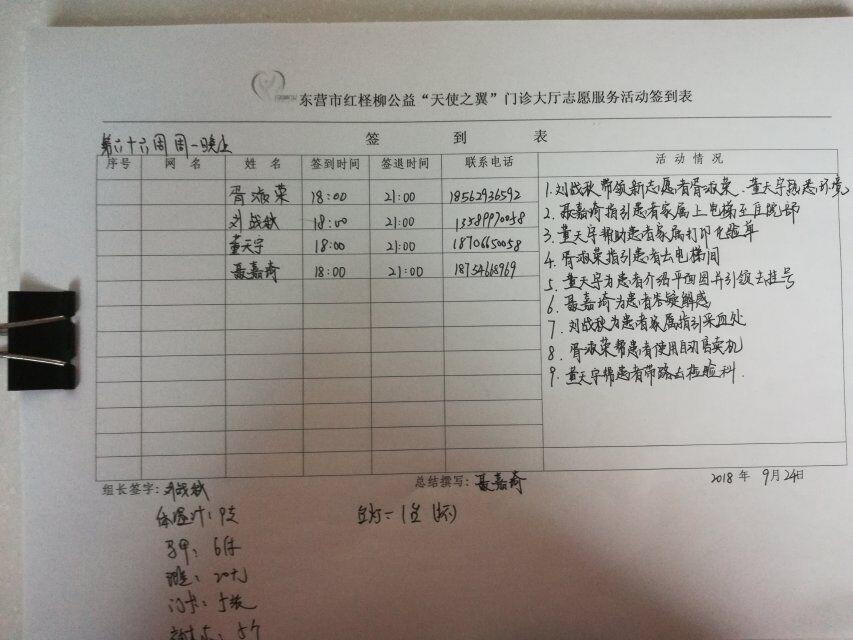 东营市红柽柳公益“天使之翼”门诊大厅志愿服务活动签到表
签 到 表
第六十六周 周一晚上
序号 网 名 姓 名 签到时间 签退时间 联系电话 活 动 情 况
胥淑荣 18:00 21:00 18562936592
刘战秋 18:00 21:00 13589970058
董天宇 18:00 21:00 18706650058
聂嘉琦 18:00 21:00 18754668969
1. 刘战秋带领新志愿者胥淑荣、董天宇熟悉环境
2. 聂嘉琦指引患者家属上电梯至住院部
3. 董天宇帮助患者家属打印化验单
4. 胥淑荣指引患者去电梯间
5. 董天宇为患者介绍平面图并引领去挂号
6. 聂嘉琦为患者答疑解惑
7. 刘战秋为患者家属指引采血处
8. 胥淑荣帮患者使用自动售卖机
9. 董天宇帮患者带路去检验科.
组长签字: 刘战秋 总结撰写: 聂嘉琦 2018 年 9月24日
体温计: 9支
马甲: 6件
20元
门卡: 5张
5个